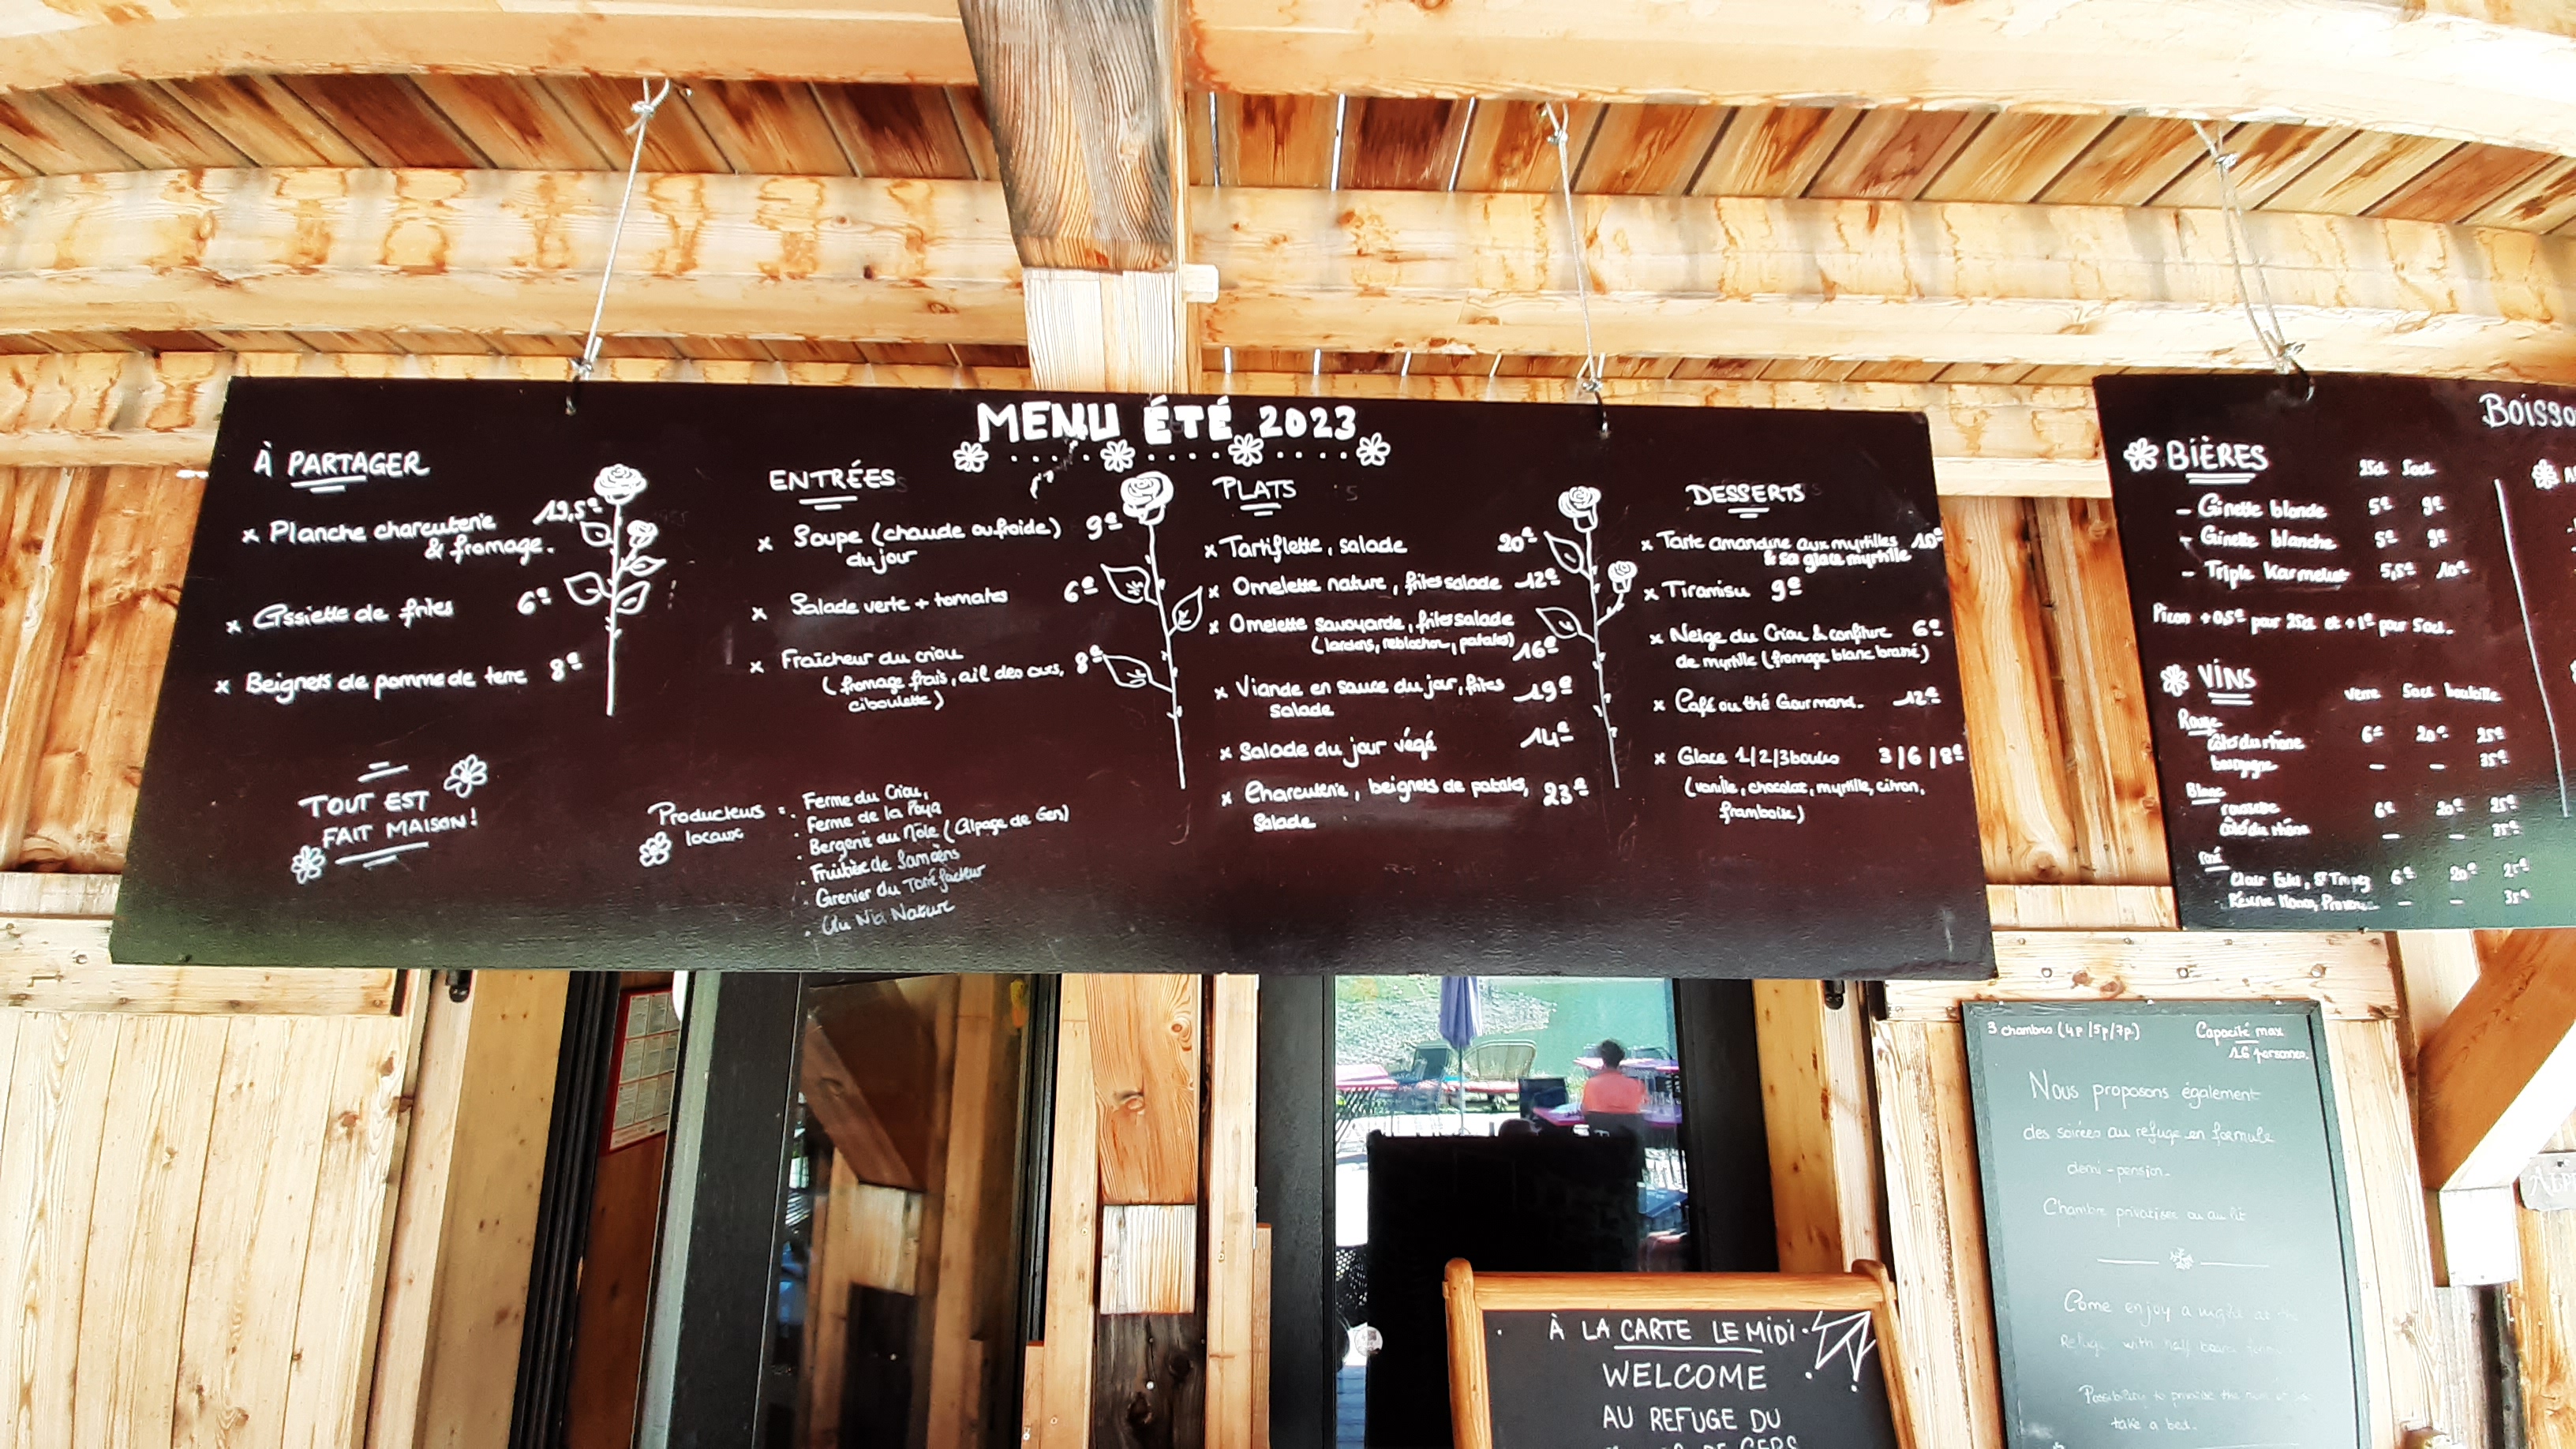 MENU ÉTÉ 2023
À PARTAGER
x Planche charcuterie 19,5€
& fromage.
x Assiette de frites 6€
x Beignets de pomme de terre 8€
TOUT EST
FAIT MAISON!
ENTRÉES
x Soupe (chaude ou froide) 9€
du jour
x Salade verte + tomates 6€
x Fraîcheur du criou
(fromage frais, ail des ours, 8€
ciboulette)
Producteurs
locaux
Ferme du Criou,
Ferme de la Poya
Bergerie du Môle (Alpage de Gers)
Fruitière de Samoëns
Grenier du Torréfacteur
Au Nid Nature
PLATS
x Tartiflette, salade 20€
x Omelette nature, frites salade 12€
x Omelette savoyarde, frites salade
(lardons, reblochon, patates) 16€
x Viande en sauce du jour, frites 19€
salade
x Salade du jour végé 14€
x Charcuterie, beignets de patates, 23€
Salade
DESSERTS
x Tarte amandine aux myrtilles 10€
& sa glace myrtille
x Tiramisu 9€
x Neige du Criou & confiture 6€
de myrtille (fromage blanc brassé)
x Café ou thé Gourmand. 12€
x Glace 1/2/3 boules 3/6/8€
(vanille, chocolat, myrtille, citron,
framboise)
BOISSO
BIÈRES 25cl 50cl
- Ginette blonde 5€ 9€
- Ginette blanche 5€ 9€
- Triple Karmeliet 5,5€ 10€
Picon +0,5€ pour 25cl et +1€ pour 50cl.
VINS
verre 50cl bouteille
Rouge
Côtes du rhône 6€ 20€ 25€
bourgogne — — 35€
Blanc
roussette 6€ 20€ 25€
Côtes du rhône — — 35€
Rosé
St Tropez 6€ 20€ 25€
— — 35€
3 chambres (4p/5p/7p.)
Capacité max
16 personnes.
Nous proposons également
des soirées au refuge en formule
demi-pension.
Chambre privatisée ou au lit
Come enjoy a night at the
Refuge with half board
Possibility to privatise the
take a bed.
À LA CARTE LE MIDI
WELCOME
AU REFUGE DU
DE GERS